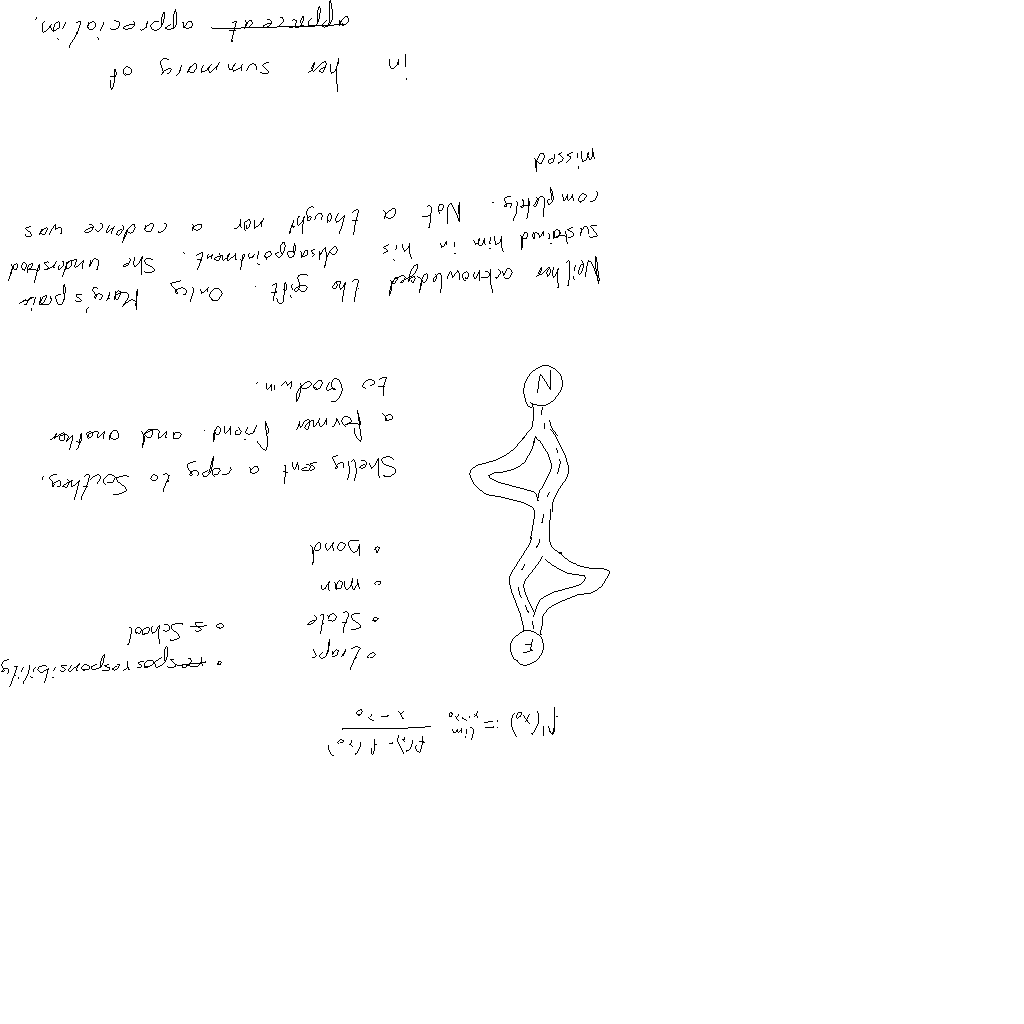 f'(x₀) := lim x→x₀ (f(x) - f(x₀)) / (x - x₀)
• traps
• State
• man
• bond
• respos responsibility
• s School
F
N
Shelly sent a copy to Southey,
a former friend. and another
to Godwin.
Neither acknowledged the gift. Only Mary's praise
sustained him in his disappointment. She understood
completly. Not a thought nor a cadence was
missed
in her summary of
appreceat appreciation.